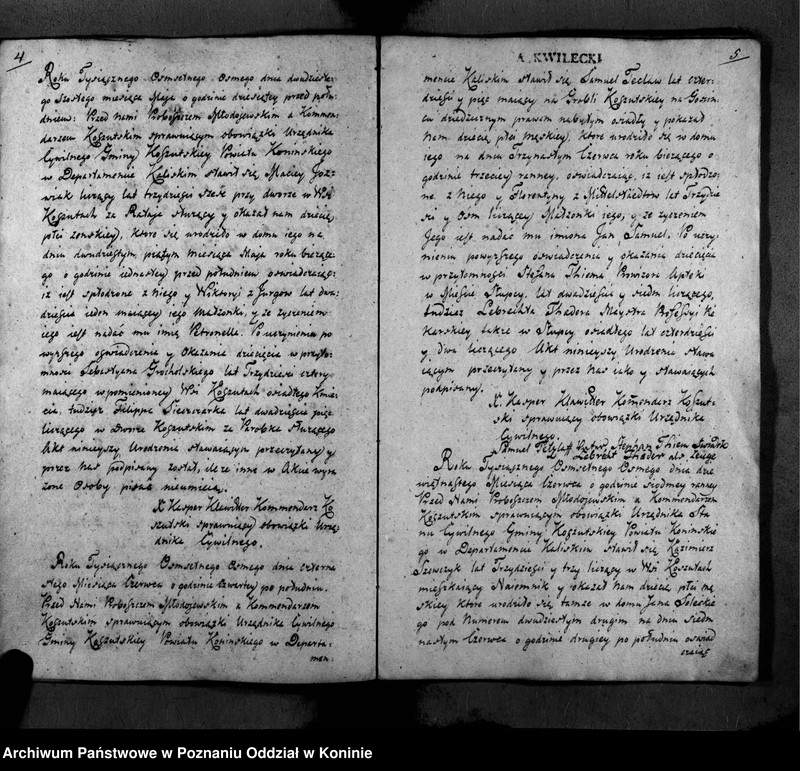 4
Roku Tysiącznego Osmsetnego Osmego dnia dwudzieste-
go szostego miesiąca Maja o godzinie dziesiątey przed połu-
dniem: Przed Nami Proboszczem Młodojewskim a Kommen-
darzem Koszutskim sprawuiącym obowiązki Urzędnika
Cywilnego Gminy Koszutskiey Powiatu Konińskiego
w Departamencie Kaliskim stawił się Maciey Joz-
wiak liczący lat trzydzieści sześć przy dworze w Wsi
Koszutach za Rataja służący y okazał nam dziecię
płci żenskiey, ktore się urodziło w domu iego na
dniu dwudziestym piątym miesiąca Maja roku bieżące-
go o godzinie iednastey przed południem oswiadczaiąc:
iż iest spłodzone z niego y Wiktoryi z Jurgow lat dwa-
dzieścia ieden maiącey iego Małżonki, y że życzeniem
iego iest nadać mu imię Petronella. Po uczynieniu po
wyższego oświadczenia y okazania dziecięcia w przyto-
mności Sebastyana Grocholskiego lat Trzydzieści cztery
maiącego w pomienioney Wsi Koszutach osiadłego Kmie-
cia, tudzież Filippa lat dwadzieścia pięć
liczącego w Dworze Koszutskim za Parobka służącego
Akt ninieyszy Urodzenia stawaiącym przeczytany y
przez Nas podpisany został, ile że inne w Akcie wyra
żone Osoby pisać nieumieią.
X Kasper Klawitter Kommendarz Ko
szutski sprawuiący obowiązki Urzę-
dnika Cywilnego.
Roku Tysiącznego Osmsetnego Osmego dnia czterna
stego Miesiąca Czerwca o godzinie czwartey po południu.
Przed Nami Proboszczem Młodojewskim a Kommendarzem
Koszutskim sprawuiącym obowiązki Urzędnika Cywilnego
Gminy Koszutskiey Powiatu Konińskiego w Departa-
men-
A. KWILECKI
5
mencie Kaliskim stawił się Samuel Teclaw lat czter-
dzieści y pięć maiący na Grobli Koszutskiey na Gościn-
cu dziedzicznym prawem nabytym osiadły y pokazał
Nam dziecię płci męskiey, które urodziło się w domu
iego na dniu Trzynastym Czerwca roku bieżącego o
godzinie trzeciey ranney, oświadczaiąc, iż iest spłodzo-
ne z Niego y Florentyny z Mittelstaedtow lat Trzydzie
ści y Osm liczącey Małżonki iego, y że życzeniem
Jego iest nadać mu imiona Jan, Samuel. Po uczy-
nieniu powyższego oświadczenia y okazania dziecięcia
w przytomności Stefana Thiema Prowizora Aptek
w Mieście Słupcy, lat dwadzieścia y siedm liczącego,
tudzież Lebrechta Thadera Maystra Professyi
karskiey także w Słupcy osiadłego lat czterdzieści
y dwa liczącego Akt ninieyszy Urodzenia stawa
iącym przeczytany y przez Nas iako y stawaiących
podpisany.
X. Kasper Klawitter Kommendarz Koszut-
ski sprawuiący obowiązki Urzędnika
Cywilnego.
Samuel Stephan Thiem
Lebrecht als Zeuge
Roku Tysiącznego Osmsetnego Osmego dnia dzie
więtnastego Miesiąca Czerwca o godzinie siódmey ranney
Przed Nami Proboszczem Młodojewskim a Kommendarzem
Koszutskim sprawuiącym obowiązki Urzędnika Sta
nu Cywilnego Gminy Koszutskiey Powiatu Konińskie
go w Departamencie Kaliskim stawił się Kazimierz
Szewczyk lat Trzydzieści y trzy liczący w Wsi Koszutach
mieszkaiący Naiemnik y okazał Nam dziecię płci mę
skiey które urodziło się tamże w domu Jana Soleckie
go pod Numerem dwudziestym drugim na dniu siedm
nastym Czerwca o godzinie drugiey po południu oswiad
czaiąc
Archiwum Państwowe w Poznaniu Oddział w Koninie